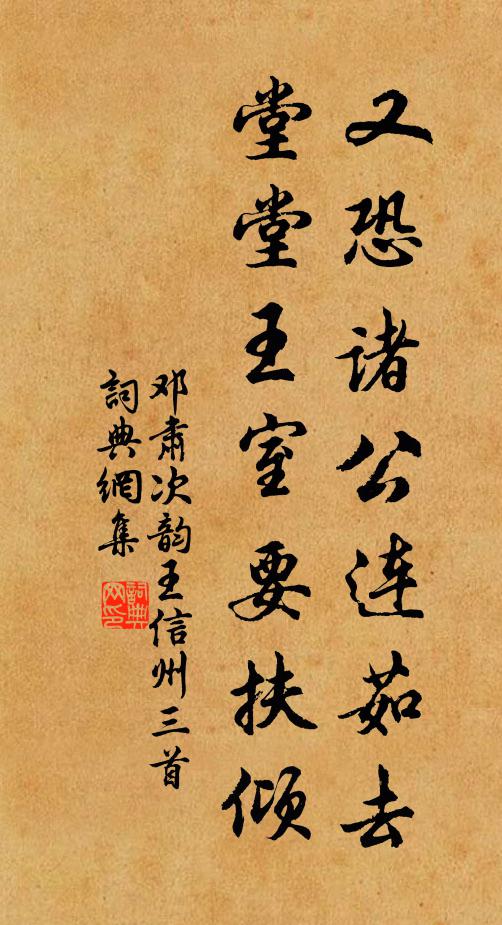 又恐诸公连茹去
堂堂王室要扶倾
邓肃次韵王信州三首
詞典網集
詞典
网印